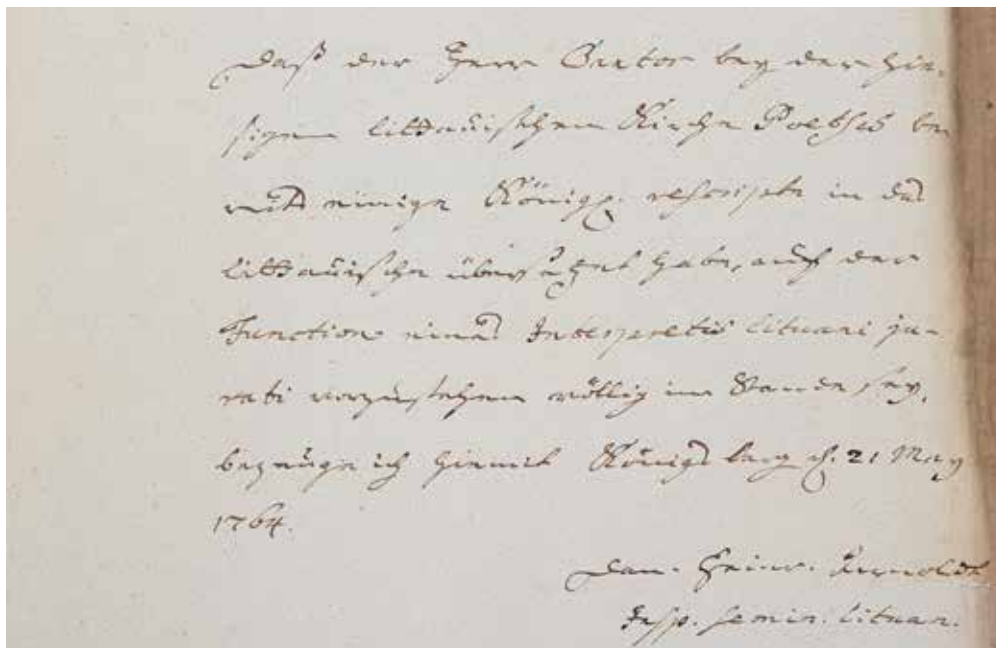 Daß der Herr Cantor bey der hie-
sigen littauischen Kirche Poelsch be
reits einige Königl. rescripta in das
littauische übersetzet habe, auch der
Function eines Interpretis lituani ju-
rati vorzustehen völlig im Stande sey,
bezeuge ich hiemit Königsberg d. 21 May
1764.
Dan. Heinr. Arnoldt
Insp. semin. lituan.